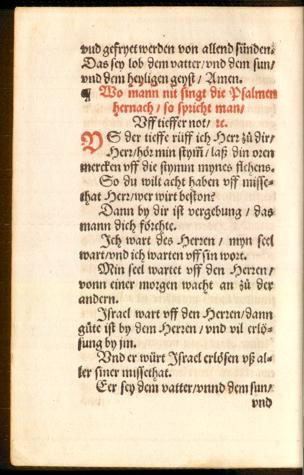 vnd gefryet werden von allend sünden.
Das sey lob dem vatter/vnd dem sun/
vnd dem heyligen geyst / Amen.
¶ Wo mann nit singt die Psalmen
hernach / so spricht man /
Vff tieffer not / ꝛc.
VS der tieffe rüff ich Herr zů dir/
Herr/hör min stym̃/ laß din oren
mercken vff die stymm mynes flehens.
So du wilt acht haben vff misse-
that Herr/wer wirt beston?
Dann by dir ist vergebung / das
mann dich förchte.
Ich wart des Herren / myn seel
wart/vnd ich warten vff sin wort.
Min seel wartet vff den Herren/
vonn einer morgen wacht an zů der
andern.
Israel wart vff den Herren/dann
güte ist by dem Herren / vnd vil erlö-
sung by jm.
Vnd er würt Israel erlösen vß al-
ler siner missethat.
Eer sey dem vatter/vnnd dem sun/
vnd